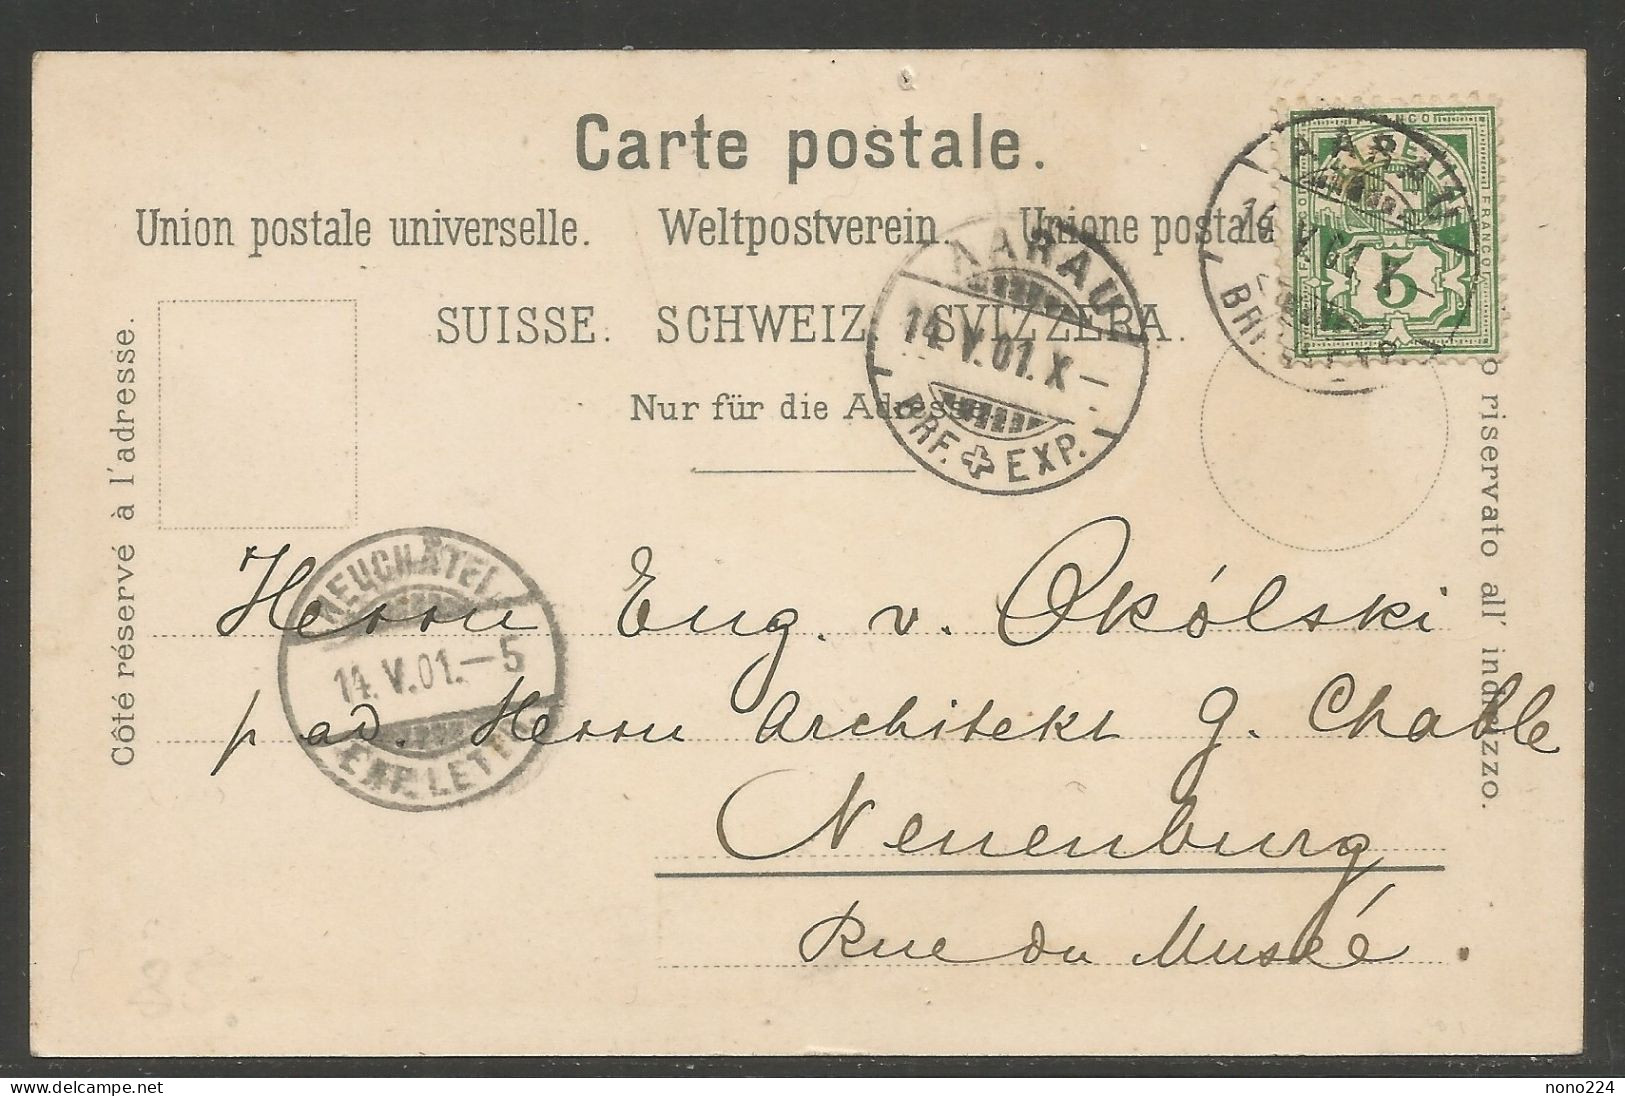 Carte postale.
Union postale universelle. Weltpostverein. Unione postale
SUISSE. SCHWEIZ. SVIZZERA.
Nur für die Adresse
Côté réservé à l'adresse.
o riservato all' indirizzo.
FRANCO
FRANCO
5
AARAU
14.V.01.X-
BRF. EXP.
AARAU
14.V.01.X-
BRF. EXP.
NEUCHÂTEL
14.V.01.-5
EXP. LETT.
Herrn Eug. v. Okólski
p ad. Herrn Architekt G. Chable
Neuenburg
Rue du Musée.
nono224